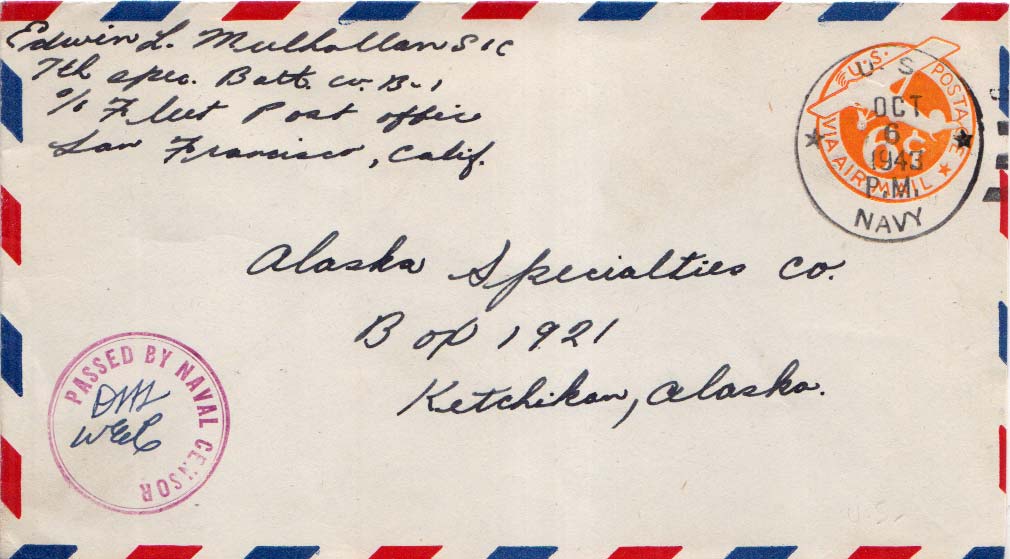 Edwin L. Mulhollan S1C
7th spec. Batt. co. B-1
c/o Fleet Post office
San Francisco, Calif.
U.S. POSTAGE
6¢
VIA AIR MAIL
U. S.
OCT
6
1943
P.M.
NAVY
Alaska Specialties Co.
Box 1921
Ketchikan, Alaska.
PASSED BY NAVAL CENSOR